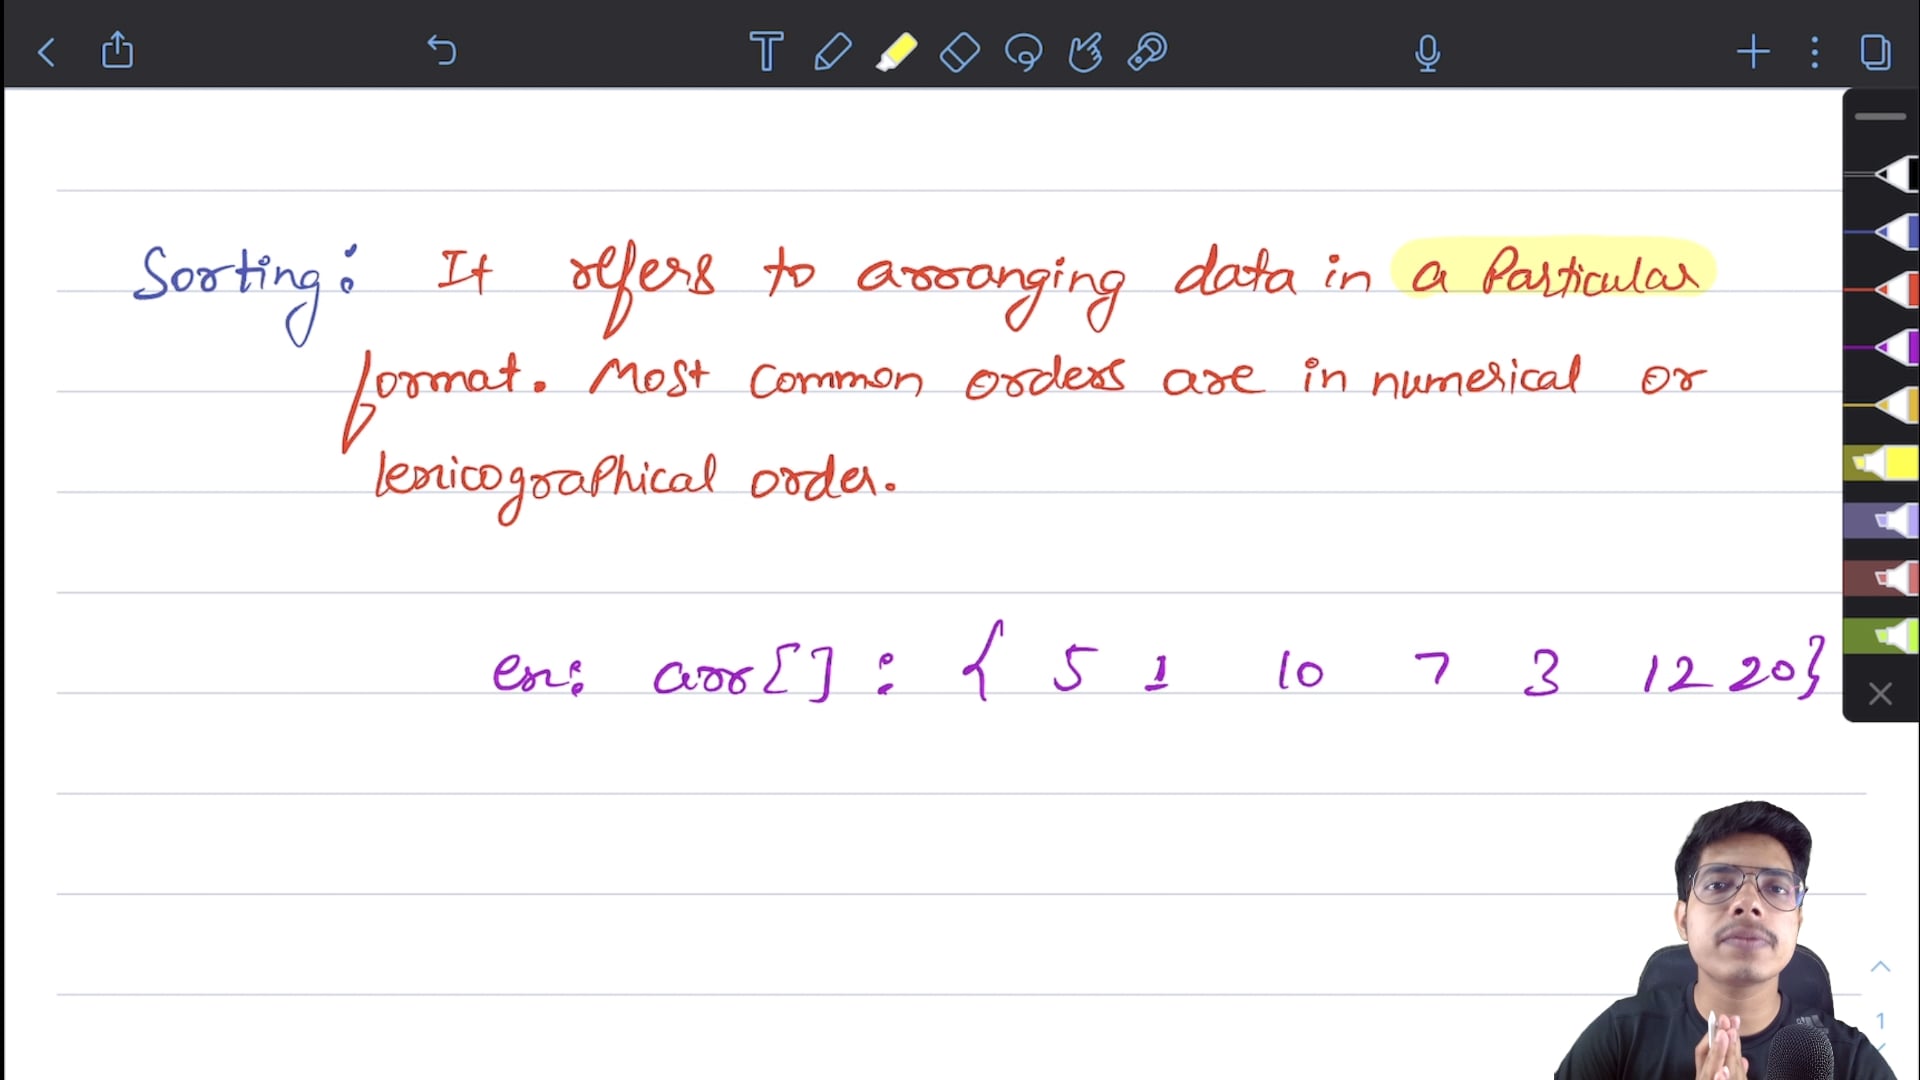 Sorting: It refers to arranging data in a Particular
format. Most common orders are in numerical or
lexicographical order.
ex: arr[] : { 5 1 10 7 3 12 20}
1